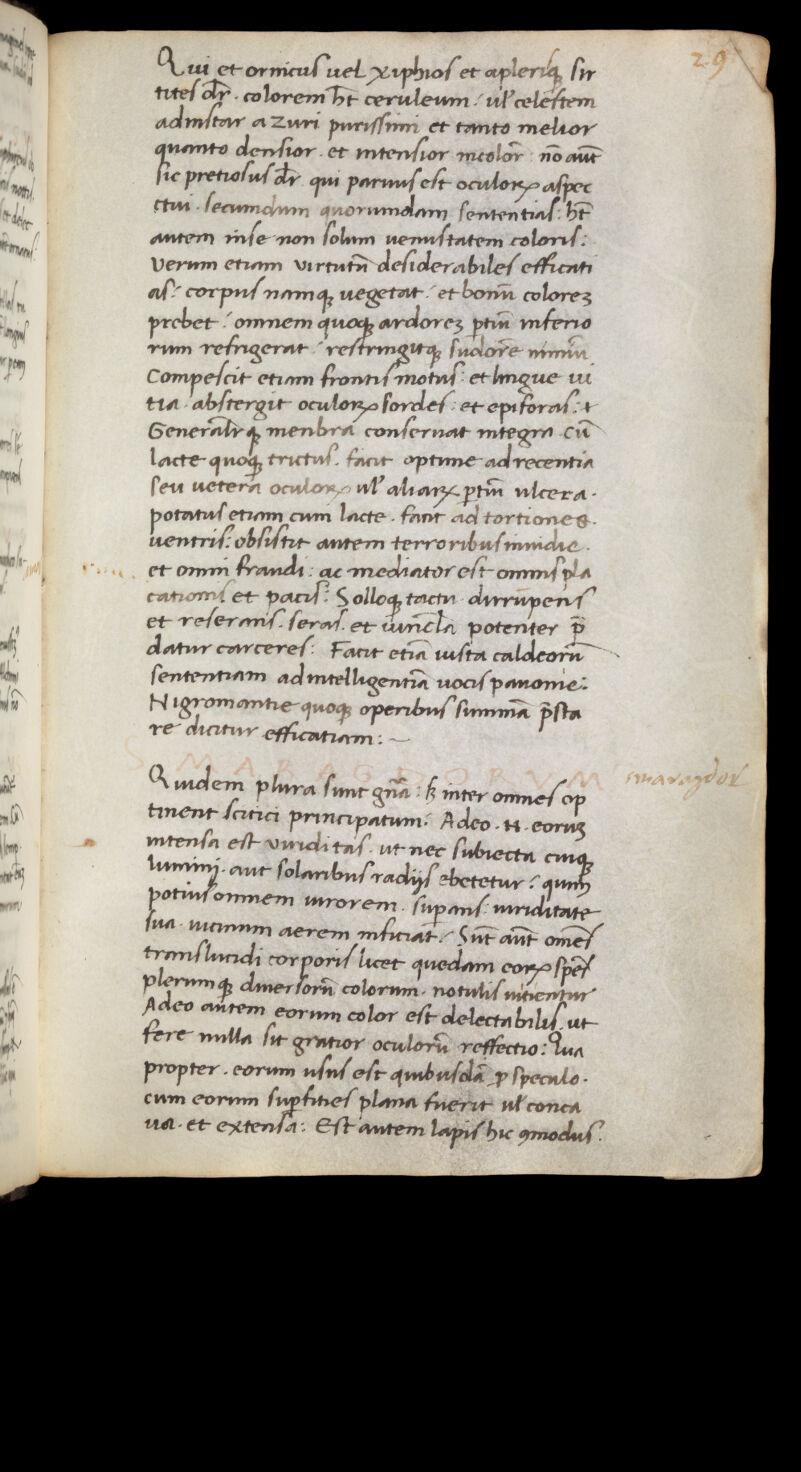 29
Qui et ornicus uel xiphios et a plerisq; sir
tites dr̄. colorem h̄t ceruleum: ul' celestem
ad instar azuri purissimi et tanto melior
quanto densior. et intensior in colorē nō aūt
sic pretiosus dr̄. qui paruus est oculoꝝ aspec
ctui. secundum quorumdam sententias: h̄t
autem in se non solum uenustatem coloris:
Verum etiam virtutū desiderabiles efficati
as: corpus namq; uegetat: et bonū coloreʒ
prebet: omnem quoq; ardoreʒ ptiū inferio
rum refrigerat: restringitq; sudorē nimiū
Compescit etiam frontis motus: et lingue ui
tia. abstergit oculoꝝ sordes: et epiforas: &
Generalr̄q; menbra conseruat integra. cū
lacte quoq; trictus. facit optime ad recentia
seu uetera oculoꝝ ul' aliaꝝ ptiū ulcera.
potatus etiam cum lacte. facit ad tortiones.
uentris: obsistit autem terroribus inuidie.
et omni fraudi: ac mediator est omnis pla
cationis et pacis: Solloq; tactu dirrūpens
et reserans. seras. et uinc̄la potenter p̄
datur carceres: Facit etiā iusta caldeorū
sententiam ad intelligentiā uocis panomie:
Nigromantie quoq; operibus summā p̄sta
re dicitur efficatiam:
SMARAGDORVM smaragdor
Quidem plura sunt gn̄ā: s; inter omnes op
tinent scitici principatum: Adeo. n. eoruʒ
intensa est uiriditas. ut nec subiecta cuiq;
lumini. aut solaribus radiis ebetetur: quin
potius omnem uirorem. superans: uiriditate
sua. uicinum aerem inficiat: Sūt aūt om̄es
translucidi corporis licet quedam eoꝝ spēs
plerumq; diuersorū colorum. notulis uitientur
Adeo autem eorum color est delectabilis. ut
fere nulla sit gratior oculorū reffectio: Qua
propter. eorum usus est quibusdā p speculo.
cum eorum supficies plana fuerit ul' conca
ua. et extensa: Est autem lapis hic ꝯmodus.